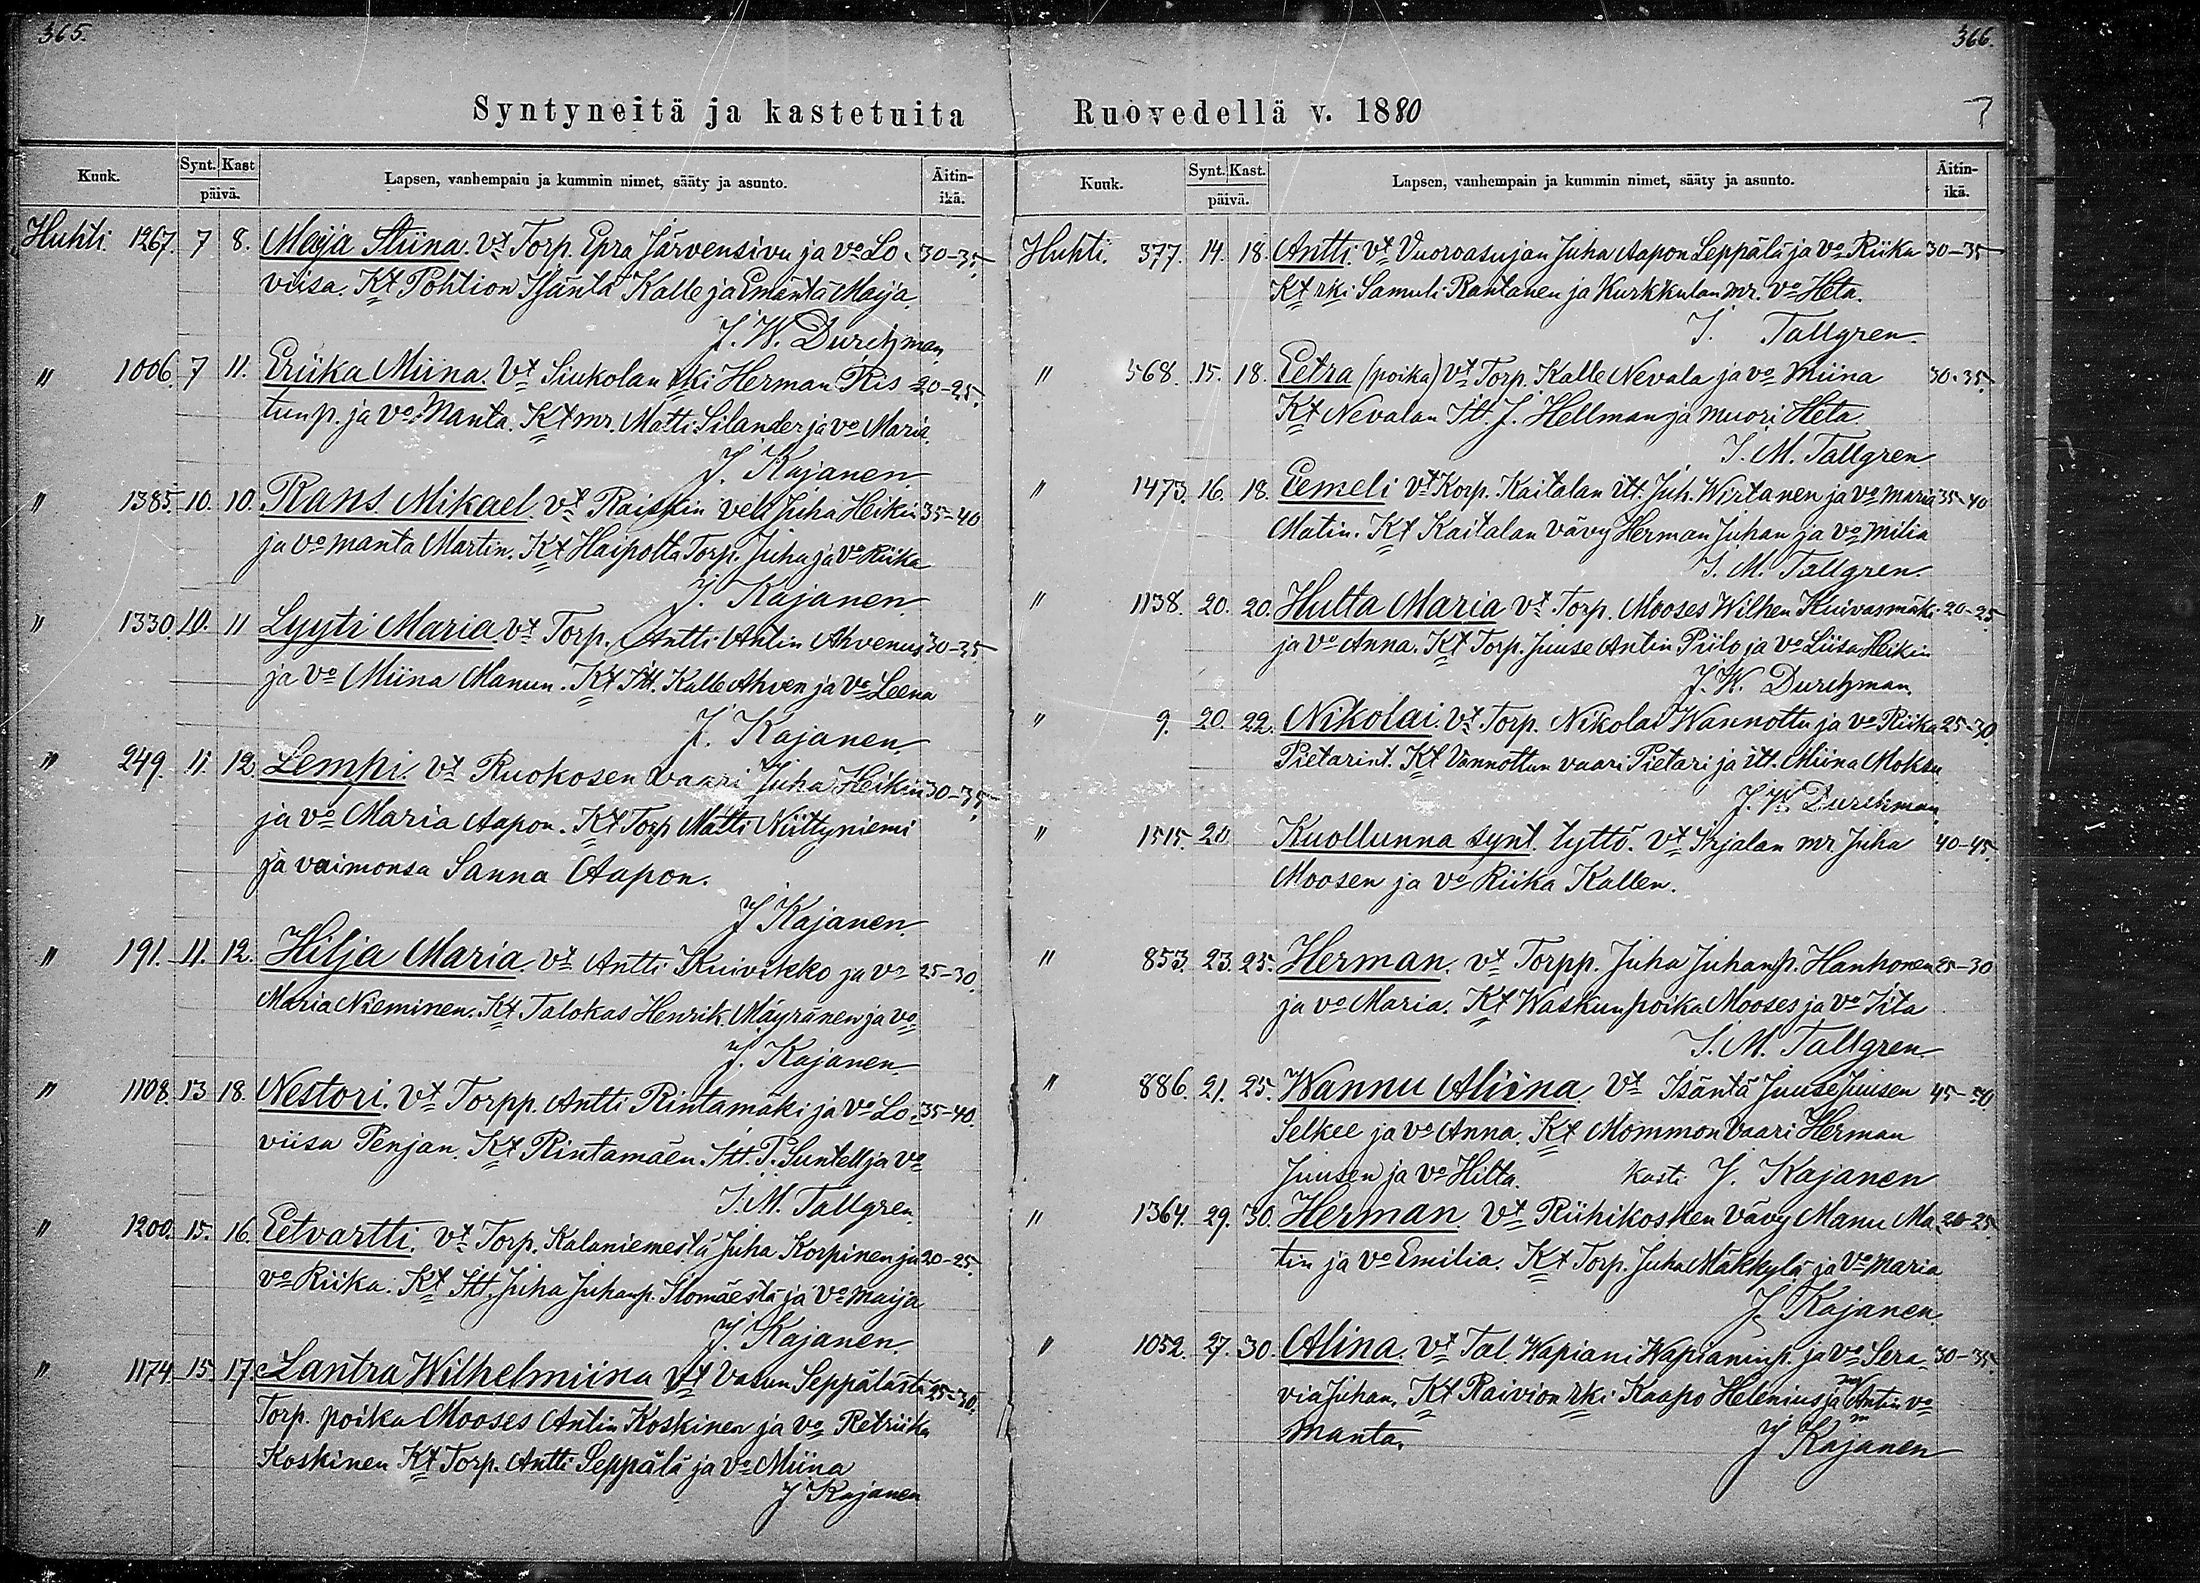 365.
Syntyneitä ja kastetuita
Kuuk. Synt. Kast päivä. Lapsen, vanhempain ja kummin nimet, sääty ja asunto. Äitin-ikä.
Huhti. 1267. 7 8. Maija Stiina. Vt Torp. Epra Järvensivu ja vo Lo- 30-35.
viisa. Kt Pohtion Isäntä Kalle ja Emäntä Maija.
J. W. Durchman
" 1006. 7 11. Eriika Miina. Vt Siukolan rki Herman Ris- 20-25.
tunp. ja vo Manta. Kt mr. Matti Silander ja vo Maria.
J. Kajanen
" 1385. 10. 10. Rans Mikael. vt Raiskin veli Juha Heikin 35-40
ja vo Manta Martin. Kt Haipolta Torp. Juha ja vo Riika
J. Kajanen
" 1330 10. 11 Lyyti Maria vt Torp. Antti Antin Ahvenus 30-35.
ja vo Miina Manun. Kt Itt. Kalle Ahven ja vo Leena
J. Kajanen
" 249. 11. 12 Lempi. vt Ruokosen vaari Juha Heikin 30-35.
ja vo Maria Aapon. Kt Torp Matti Niittyniemi
ja vaimonsa Sanna Aapon.
J Kajanen.
" 191. 11. 12. Hilja Maria. vt Antti Kuivikko ja vo 25-30.
Maria Nieminen. Kt Talokas Henrik Mäyränen ja vo
J. Kajanen
" 1108. 13 18. Nestori. vt Torpp. Antti Rintamäki ja vo Lo- 35-40.
viisa Penjan. Kt Rintamäen Itt. P. Suntell ja vo
I. M. Tallgren.
" 1200. 15. 16. Eetvartti. vt Torp. Kalaniemestä Juha Korpinen ja 20-25.
vo Riika. Kt Itt. Juha Juhanp. Ilomäestä ja vo Maija
J. Kajanen.
" 1174. 15 17. Santra Wilhelmiina vt Vasun Seppälästä 25-30.
Torp. poika Mooses Antin Koskinen ja vo Retriika
Koskinen Kt Torp. Antti Seppälä ja vo Miina
J Kajanen
366.
7
Ruovedellä v. 1880
Kuuk. Synt. Kast. päivä. Lapsen, vanhempain ja kummin nimet, sääty ja asunto. Äitin-ikä.
Huhti. 377. 14. 18. Antti. vt Vuoroasujan Juha Aapon Seppälä ja vo Riika 30-35
Kt rki Samuli Rantanen ja Kurkkulan mr. vo Heta.
I. Tallgren.
" 568. 15. 18. Eetra (poika) vt Torp. Kalle Nevala ja vo Miina 30-35.
Kt Nevalan Itt. J. Hellman ja muori Heta.
I. M. Tallgren
" 1473. 16. 18. Eemeli vt Korp. Kaitalan itt. Juh. Wirtanen ja vo Maria 35-40
Matin. Kt Kaitalan vävy Herman Juhan ja vo Milia
I. M. Tallgren.
" 1138. 20. 20. Hulta Maria vt Torp. Mooses Wilhen Kuivasmäki 20-25.
ja vo Anna. Kt Torp. Juuse Antin Piilo ja vo Liisa Heikin
J. W. Durchman.
" 9. 20. 22. Nikolai. vt Torp. Nikolai Wannottu ja vo Riika 25-30.
Pietarint. Kt Vannottun vaari Pietari ja itt. Miina Moksu
J. W. Durchman
" 1515. 20 Kuollunna synt. tyttö. vt Yrjalan mr Juha 40-45.
Moosen ja vo Riika Kallen.
" 853. 23. 25. Herman. vt Torpp. Juha Juhanp. Hanhonen 25-30
ja vo Maria. Kt Waskunpoika Mooses ja vo Iita
I. M. Tallgren.
" 886. 21. 25. Wannu Aliina. vt Isäntä Juuse Juusen 45-50.
Selkee ja vo Anna. Kt Mommon vaari Herman
Juusen ja vo Hilta. Kasti J. Kajanen
" 1364. 29. 30. Herman. vt Riihikosken vävy Manu Ma- 20-25.
tin ja vo Emilia. Kt Torp. Juha Mäkkylä ja vo Maria
J. Kajanen.
" 1052. 27. 30. Alina. vt Tal. Wapiani Wapianinp. ja vo Sera- 30-35.
via Juhan. Kt Raivion rki Kaapo Helenius ja Antin vo
Manta.
J Kajanen